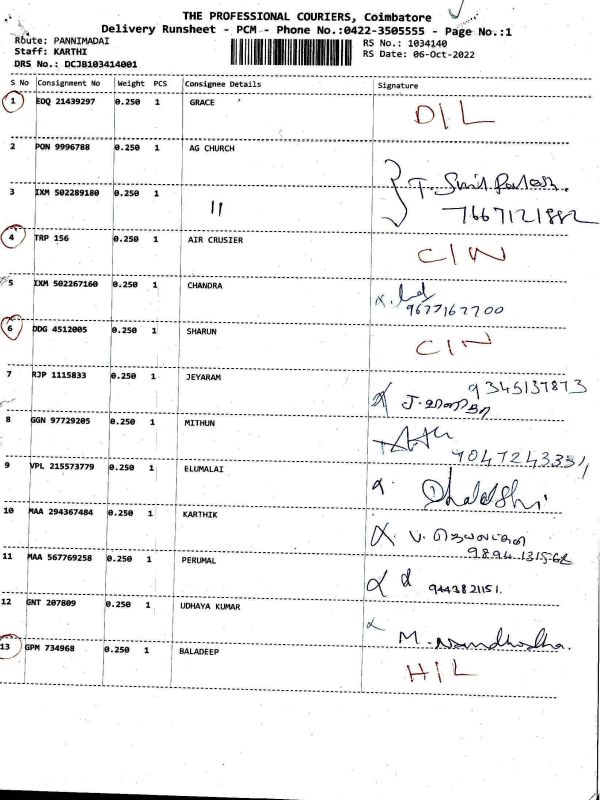 THE PROFESSIONAL COURIERS, Coimbatore
Delivery Runsheet - PCM - Phone No.:0422-3505555 - Page No.:1
Route: PANNIMADAI
RS No.: 1034140
Staff: KARTHI
RS Date: 06-Oct-2022
DRS No.: DCJB103414001
S No Consignment No Weight PCS Consignee Details Signature
1 EDQ 21439297 0.250 1 GRACE D/L
2 PON 9996788 0.250 1 AG CHURCH
3 IXM 502289180 0.250 1 11
7667121882
4 TRP 156 0.250 1 AIR CRUSIER C/N
5 IXM 502267160 0.250 1 CHANDRA
9677167700
6 DDG 4512005 0.250 1 SHARUN C/N
7 RJP 1115833 0.250 1 JEYARAM 9345137873
8 GGN 97729205 0.250 1 MITHUN
9047243331
9 VPL 215573779 0.250 1 ELUMALAI
10 MAA 294367484 0.250 1 KARTHIK
9894131568
11 MAA 567769258 0.250 1 PERUMAL
9443821151.
12 GNT 207809 0.250 1 UDHAYA KUMAR
13 GPM 734968 0.250 1 BALADEEP H/L